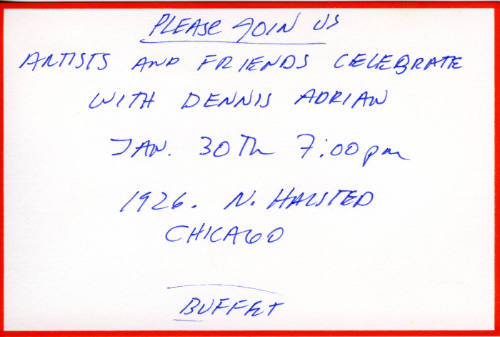 PLEASE JOIN US
ARTISTS AND FRIENDS CELEBRATE
WITH DENNIS ADRIAN
JAN. 30Th 7:00pm
1926. N. HALSTED
CHICAGO
BUFFET